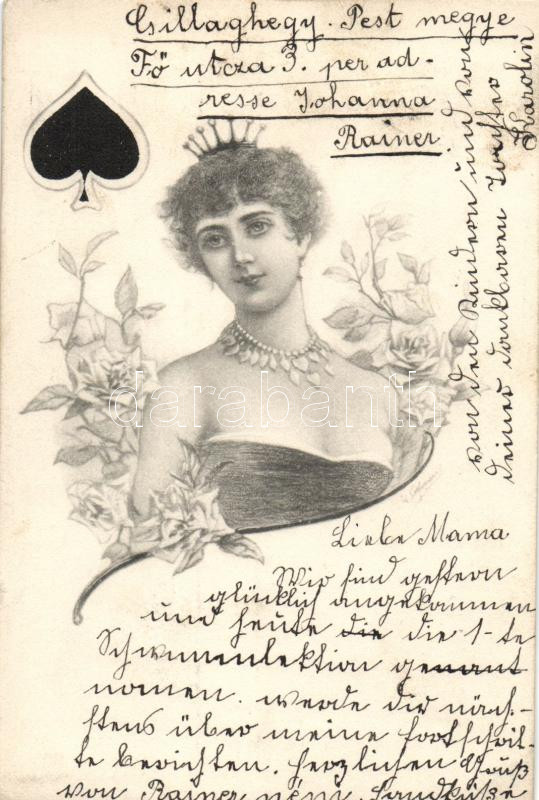 Csillaghegy. Pest megye
Fő utcza 3. per ad-
resse Johanna
Rainer.
Liebe Mama
Wir sind gestern
glücklich angekommen
und heute die die 1-te
Schwimmlektion genannt
nomen. werde dir näch-
stens über meine Fortschrit-
te berichten. Herzlichen Gruß
von Rainer néni. Handküße
von den Kindern und von
deiner dankbaren Tochter
Karolin
darabanth